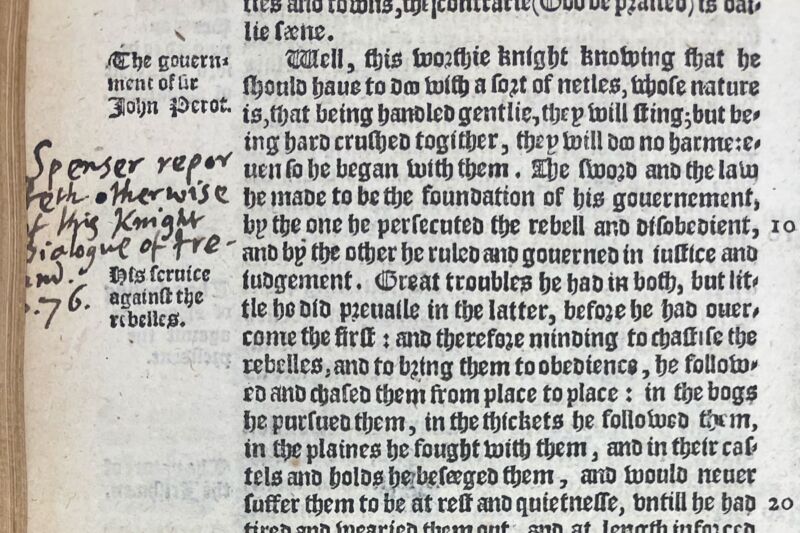 ties and towns, the contrarie (God be praised) is dai-
lie sæne.
The gouern-
ment of sir
John Perot.
Well, this worthie knight knowing that he
should haue to doo with a sort of netles, whose nature
is, that being handled gentlie, they will sting; but be-
ing hard crushed togither, they will doo no harme: e-
uen so he began with them. The sword and the law
he made to be the foundation of his gouernement,
by the one he persecuted the rebell and disobedient, 10
and by the other he ruled and gouerned in iustice and
iudgement. Great troubles he had in both, but lit-
tle he did preuaile in the latter, before he had ouer-
come the first: and therefore minding to chastise the
rebelles, and to bring them to obedience, he follow-
ed and chased them from place to place: in the bogs
he pursued them, in the thickets he followed them,
in the plaines he fought with them, and in their cas-
tels and holds he besæged them, and would neuer
suffer them to be at rest and quietnesse, vntill he had 20
tired and wearied them out, and at length inforced
Spenser repor
teth otherwise
of this Knight
Dialogue of Ire-
and.
.76.
His seruice
against the
rebelles.